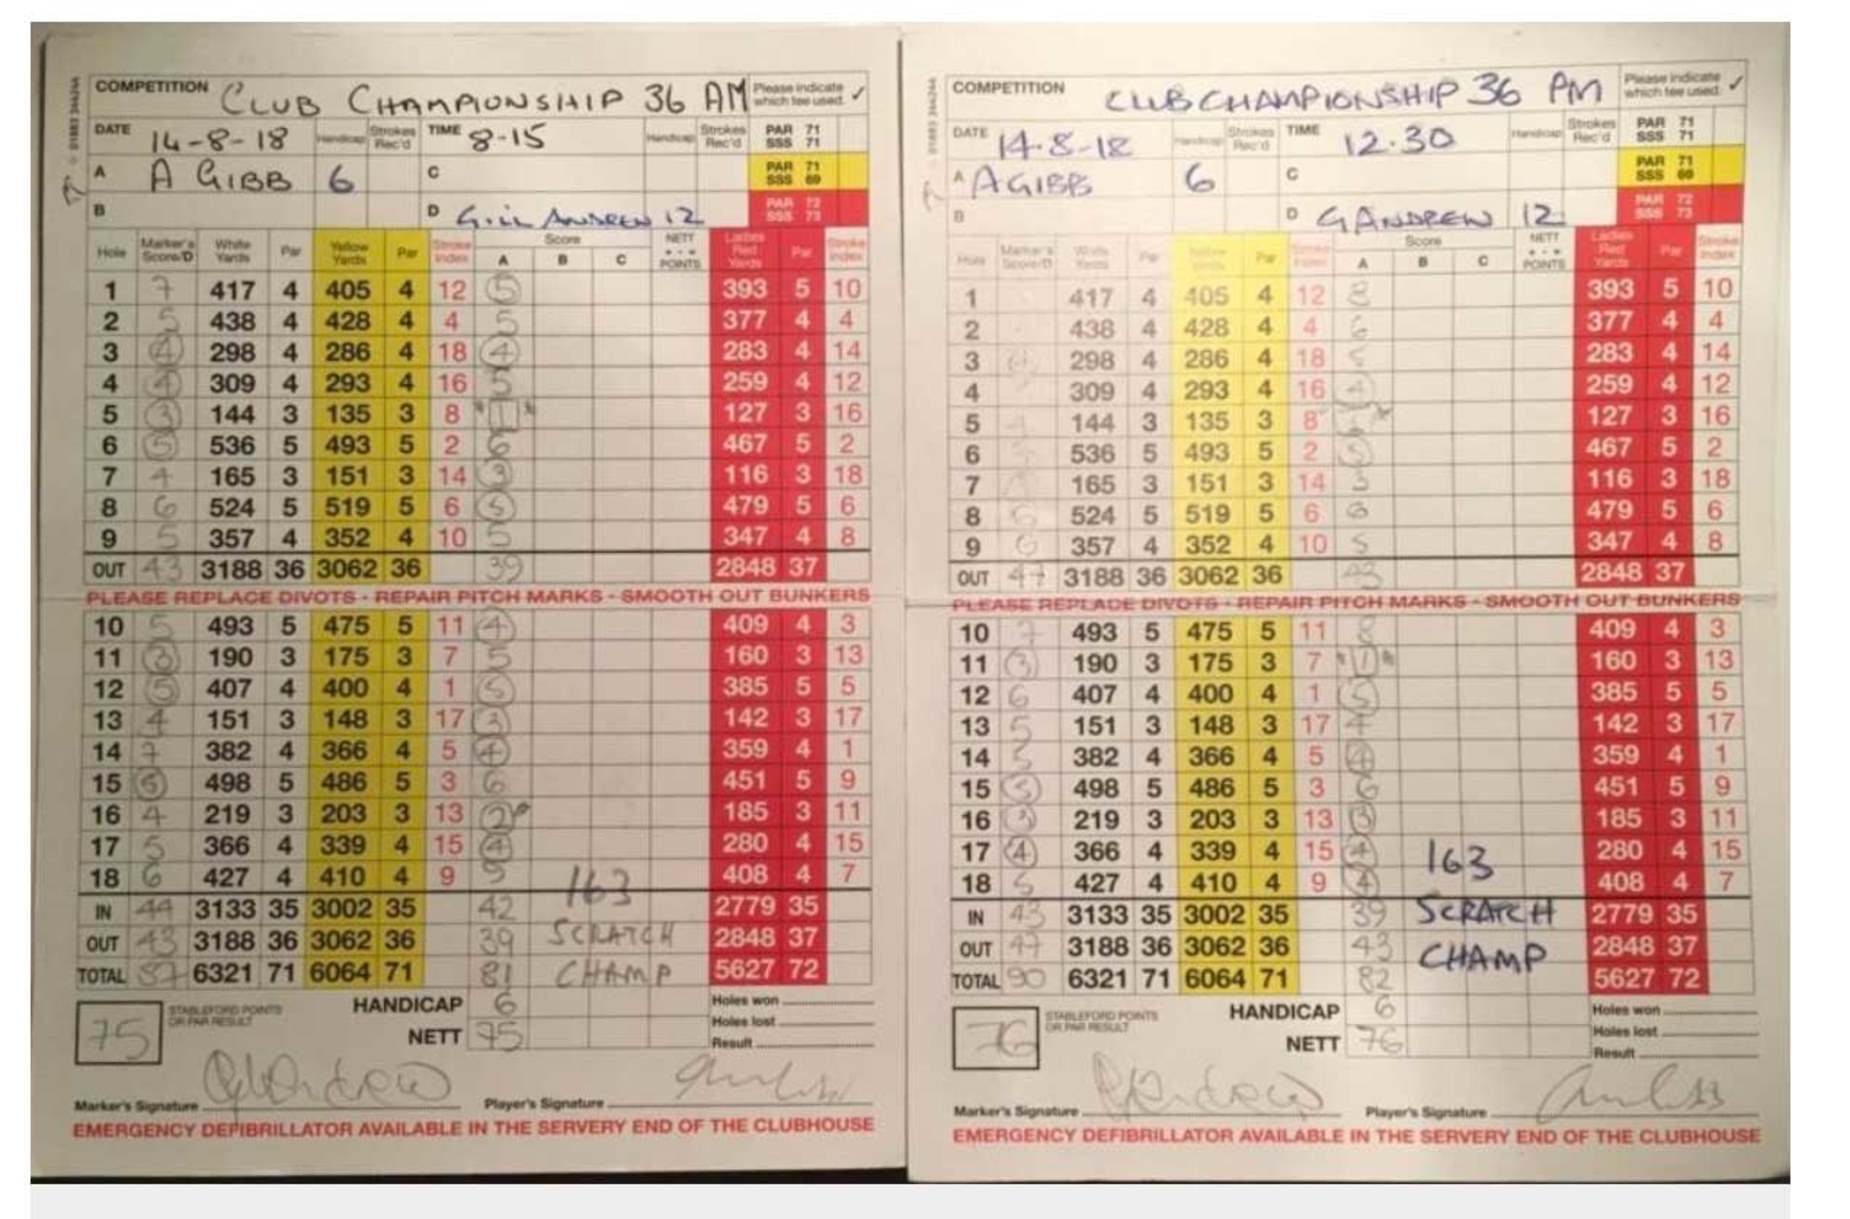 COMPETITION CLUB CHAMPIONSHIP 36 AM Please indicate which tee used ✓
DATE 14-8-18 Handicap Strokes Rec'd TIME 8-15 Handicap Strokes Rec'd PAR 71 SSS 71
A A GIBB 6 C PAR 71 SSS 69
B D GILL ANDREW 12 PAR 72 SSS 73
Hole Marker's Score/D White Yards Par Yellow Yards Par Stroke Index Score A B C NETT + - • POINTS Ladies Red Yards Par Stroke Index
1 7 417 4 405 4 12 5 393 5 10
2 5 438 4 428 4 4 5 377 4 4
3 4 298 4 286 4 18 4 283 4 14
4 4 309 4 293 4 16 5 259 4 12
5 3 144 3 135 3 8 1 127 3 16
6 5 536 5 493 5 2 6 467 5 2
7 4 165 3 151 3 14 3 116 3 18
8 6 524 5 519 5 6 5 479 5 6
9 5 357 4 352 4 10 5 347 4 8
OUT 43 3188 36 3062 36 39 2848 37
PLEASE REPLACE DIVOTS - REPAIR PITCH MARKS - SMOOTH OUT BUNKERS
10 5 493 5 475 5 11 4 409 4 3
11 3 190 3 175 3 7 5 160 3 13
12 5 407 4 400 4 1 5 385 5 5
13 4 151 3 148 3 17 3 142 3 17
14 7 382 4 366 4 5 4 359 4 1
15 5 498 5 486 5 3 6 451 5 9
16 4 219 3 203 3 13 2 185 3 11
17 5 366 4 339 4 15 4 280 4 15
18 6 427 4 410 4 9 5 163 408 4 7
IN 44 3133 35 3002 35 42 2779 35
OUT 43 3188 36 3062 36 39 SCRATCH 2848 37
TOTAL 87 6321 71 6064 71 81 CHAMP 5627 72
75 STABLEFORD POINTS OR PAR RESULT HANDICAP 6 Holes won
Holes lost
NETT 75 Result
Marker's Signature Player's Signature
EMERGENCY DEFIBRILLATOR AVAILABLE IN THE SERVERY END OF THE CLUBHOUSE
COMPETITION CLUB CHAMPIONSHIP 36 PM Please indicate which tee used ✓
DATE 14-8-18 Handicap Strokes Rec'd TIME 12.30 Handicap Strokes Rec'd PAR 71 SSS 71
A A GIBB 6 C PAR 71 SSS 69
B D G ANDREW 12 PAR 72 SSS 73
Hole Marker's Score/D White Yards Par Yellow Yards Par Stroke Index Score A B C NETT + - • POINTS Ladies Red Yards Par Stroke Index
1 417 4 405 4 12 393 5 10
2 438 4 428 4 4 6 377 4 4
3 4 298 4 286 4 18 5 283 4 14
4 309 4 293 4 16 4 259 4 12
5 144 3 135 3 8 127 3 16
6 536 5 493 5 2 5 467 5 2
7 165 3 151 3 14 116 3 18
8 524 5 519 5 6 479 5 6
9 6 357 4 352 4 10 5 347 4 8
OUT 47 3188 36 3062 36 43 2848 37
PLEASE REPLACE DIVOTS - REPAIR PITCH MARKS - SMOOTH OUT BUNKERS
10 7 493 5 475 5 11 409 4 3
11 3 190 3 175 3 7 1 160 3 13
12 6 407 4 400 4 1 5 385 5 5
13 5 151 3 148 3 17 4 142 3 17
14 5 382 4 366 4 5 4 359 4 1
15 5 498 5 486 5 3 6 451 5 9
16 3 219 3 203 3 13 3 185 3 11
17 4 366 4 339 4 15 4 163 280 4 15
18 5 427 4 410 4 9 4 408 4 7
IN 43 3133 35 3002 35 39 SCRATCH 2779 35
OUT 47 3188 36 3062 36 43 CHAMP 2848 37
TOTAL 90 6321 71 6064 71 82 5627 72
76 STABLEFORD POINTS OR PAR RESULT HANDICAP 6 Holes won
Holes lost
NETT 76 Result
Marker's Signature Player's Signature
EMERGENCY DEFIBRILLATOR AVAILABLE IN THE SERVERY END OF THE CLUBHOUSE